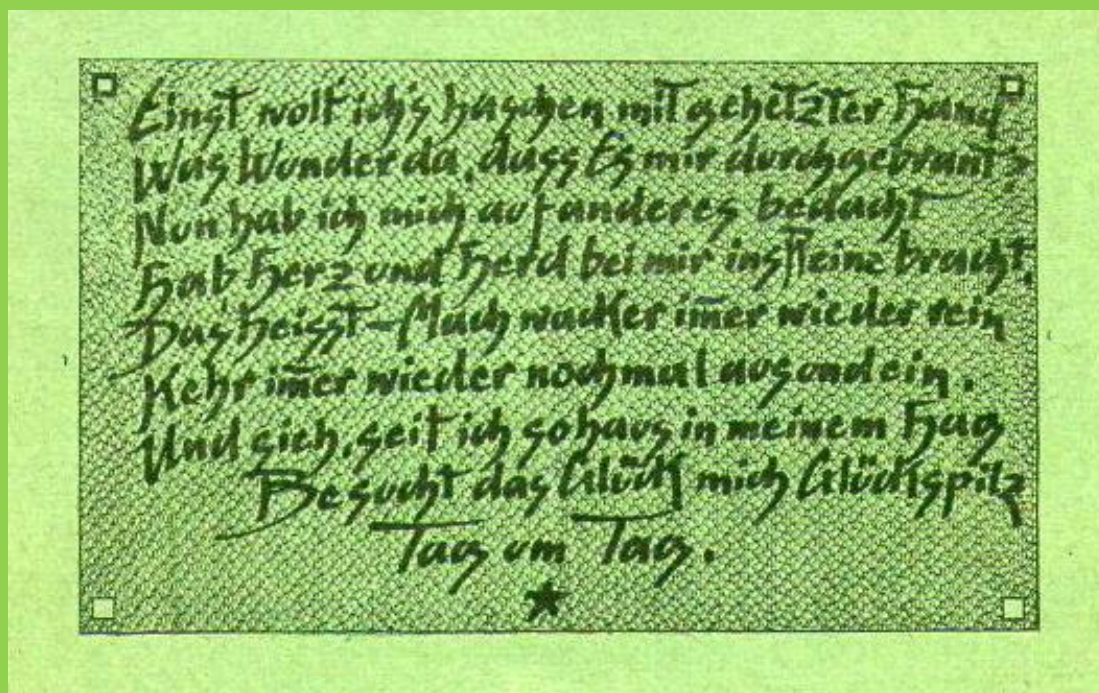 Einst wolt ich's haschen mit gehetzter Hand
Was Wunder da, dass Es mir durchgebrant?
Nun hab ich mich auf anderes bedacht
Hab Herz und Herd bei mir ins Reine bracht.
Das heisst - Mach wacker im̅er wieder rein
Kehr im̅er wieder nochmal aus und ein.
Und sieh, seit ich so haus in meinem Hag
Besucht das Glück mich Glückspilz
Tag um Tag.